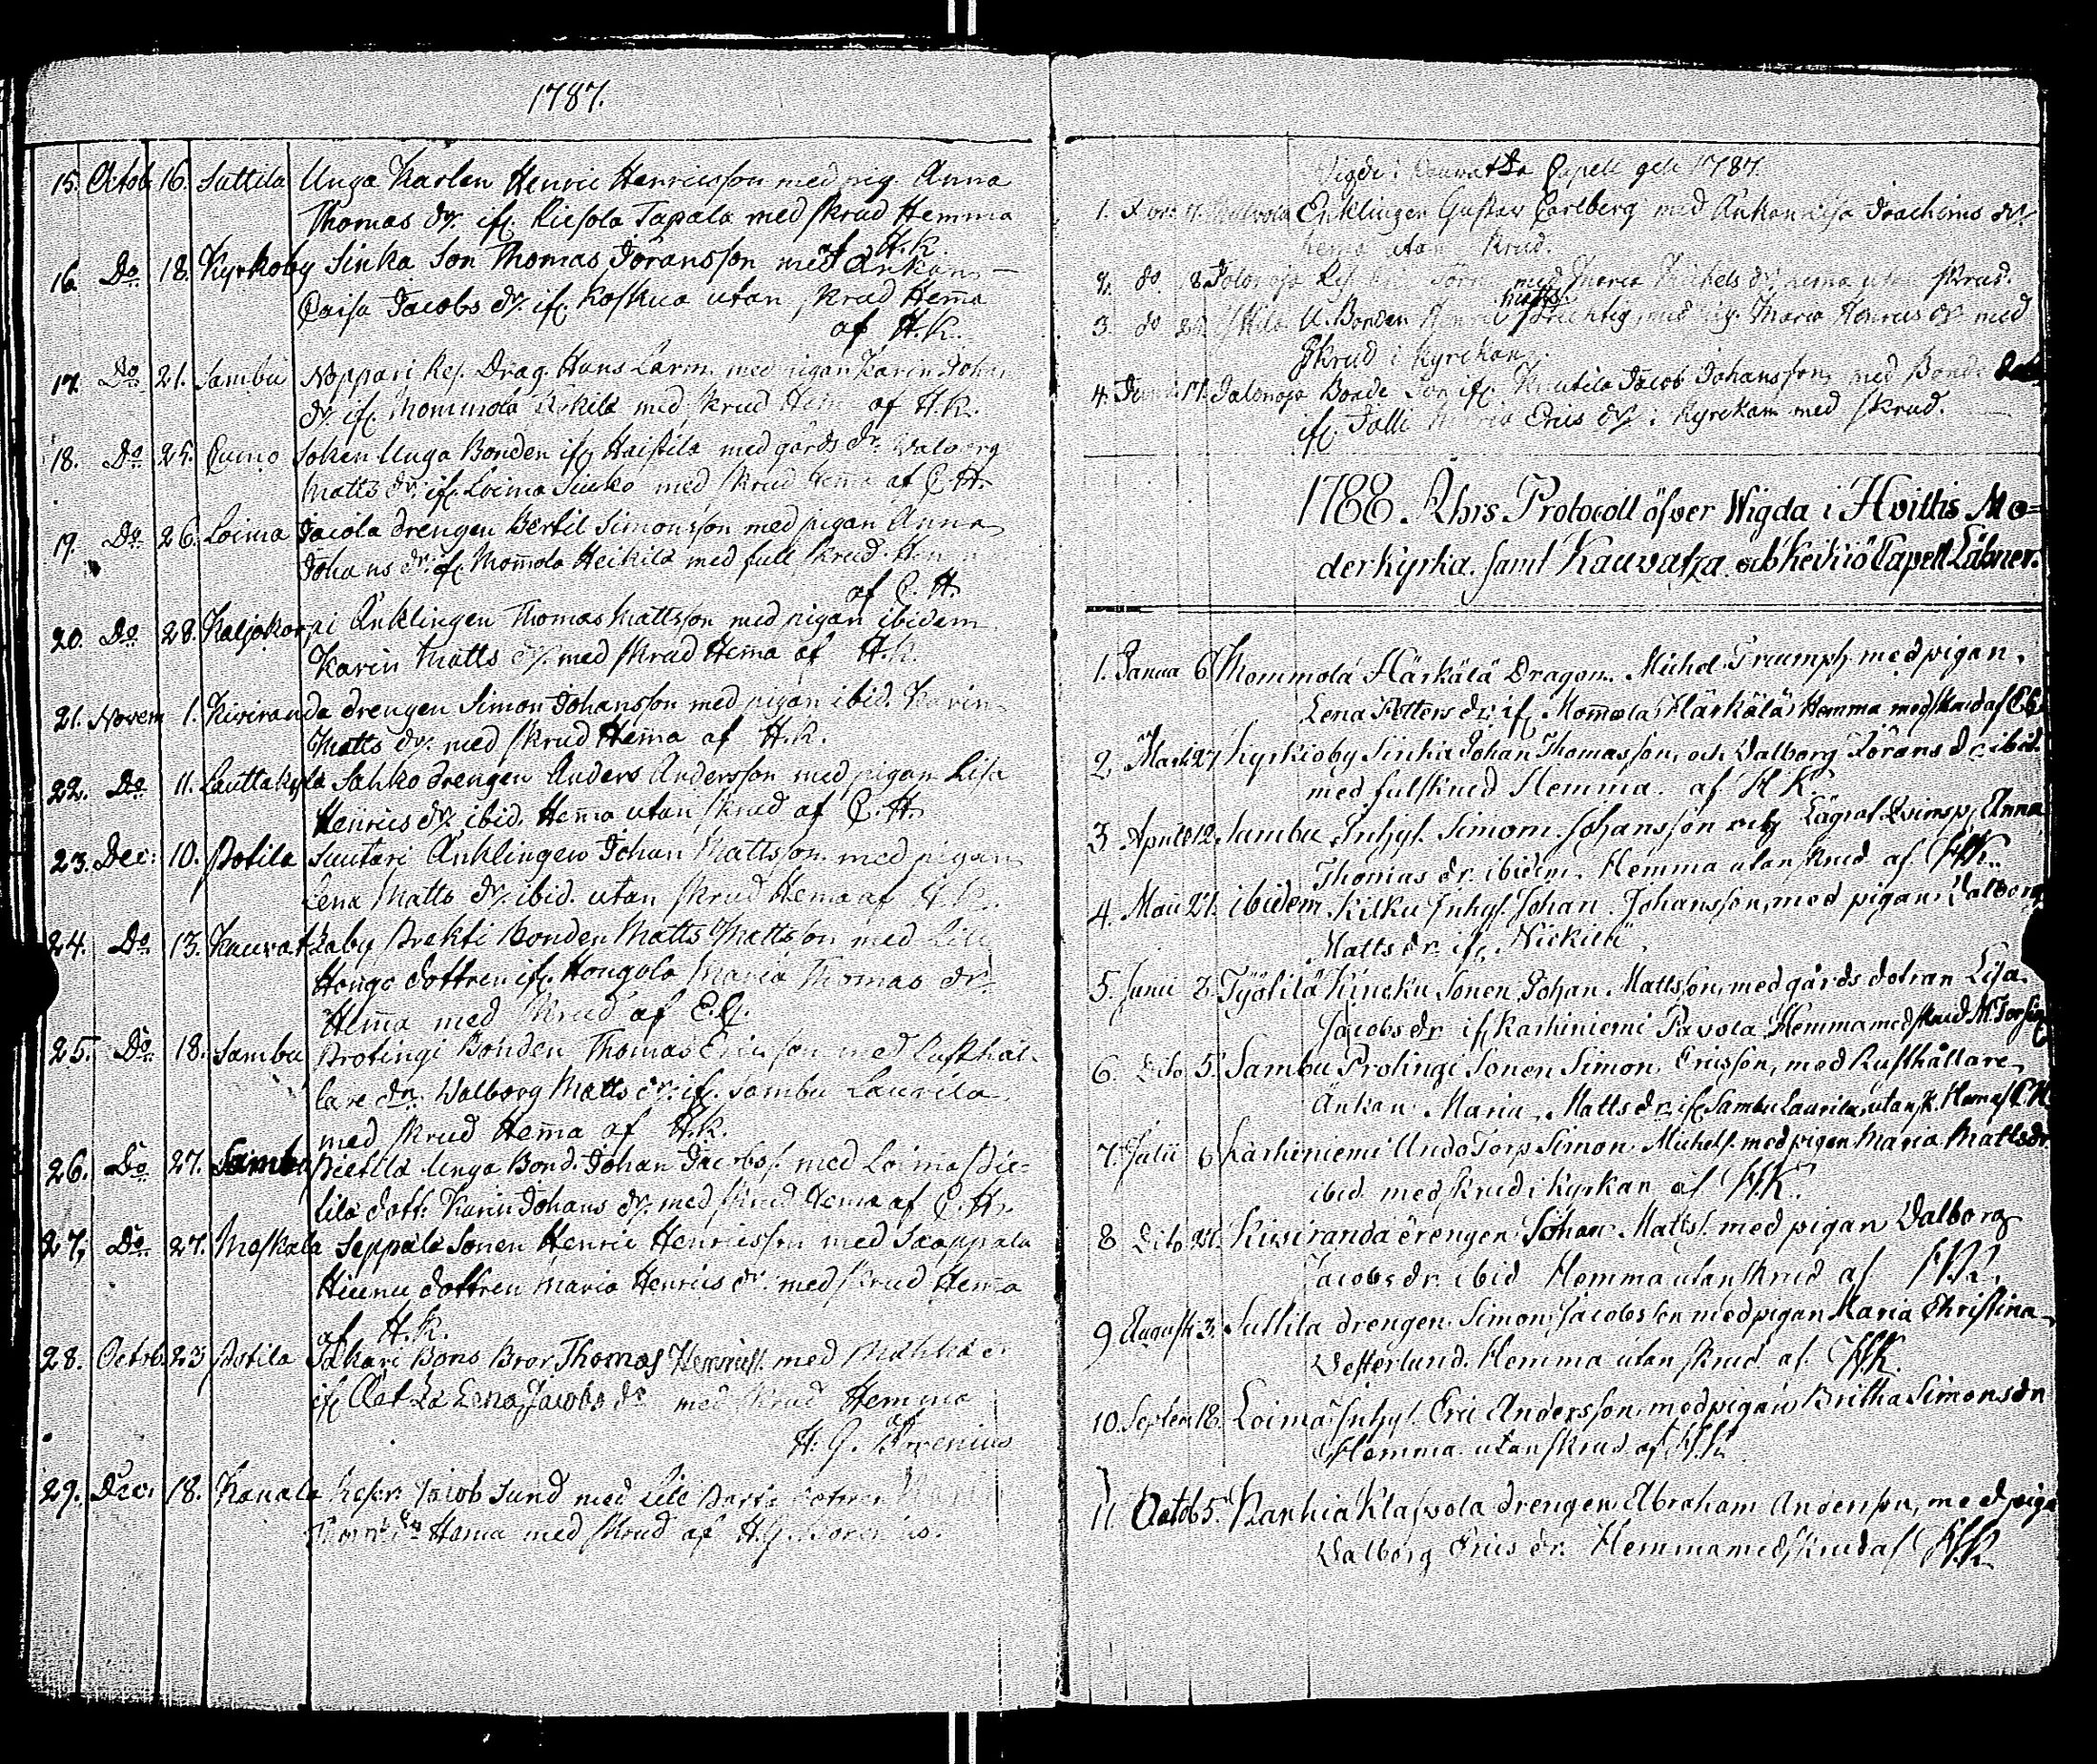 1787.
15. Octob. 16. Suttila Unga Karlen Henric Henricsson med pig. Anna
Thomas dr. ifr. Riesola Tapala med skrud Hemma
af H.K.
16. Do 18. Kyrkoby Sinka Son Thomas Göransson med Änkan
Caisa Jacobs dr. ifr. Koskua utan skrud Hemma
af H.K.
17. Do 21. Sambu Noppari Res. Drag. Hans Larm med pigan Karin Johans
dr. ifr. Mommola med skrud Hem af H.K.
18. Do 25. Cumo Soken Unga Bonden ifr. Haistila med gårds dr. Walborg
Matts dr. ifr. Loima Sinko med skrud Hema af C.H.
19. Do 26. Loima Jacola drengen Bertil Simonsson med pigan Anna
Johans dr. ifr. Momola Heikilä med full skrud.
af C.H.
20. Do 28. Kaljakorpi Änklingen Thomas Mattsson med pigan ibidem
Karin Matts dr. med skrud Hema af H.K.
21. Novem 1. Kiviranda drengen Simon Johansson med pigan ibid. Karin
Matts dr. med skrud Hema af H.K.
22. Do 11. Lauttakylä Sahko drengen Anders Andersson med pigan Lisa
Henrics dr. ibid. Hema utan skrud af C.H.
23. Dec: 10. Potila Suutari Änklingen Johan Mattsson med pigan
Lena Matts dr. ibid. utan skrud Hema af H.K.
24. Do 13. Kauvatzaby Prekti Bonden Matts Mattsson med Lill
Hongo dottren ifr. Hongola Maria Thomas dr
Hema med skrud af E.C.
25. Do 18. Sambu Protingi Bonden Thomas Ericsson med Rusthål-
lare dr. Walborg Matts dr. ifr. Sambu Laurila
med skrud Hema af H.K.
26. Do 27. Sambu Pietilä Unga Bond. Johan Jacobs. med Loima Pie-
tilä dott. Karin Johans dr. med skrud Hema af C.H.
27. Do 27. Maskala Seppälä Sonen Henric Henricsson med
dottren Maria Henrics dr. med skrud Hema
af H.K.
28. Octob. 23 Potila Bons Bror Thomas med
ifr. Lena Jacobs dr. med skrud Hemma
H. G.
29. Dec. 18. Kanala Jacob Sund med Lill
Hema med skrud af H.G.
Capell 1787.
1. Enklingen Gustav Carlberg med Änkan Lisa Joachims dr
utan skrud.
2. do med Maria Michels dr. utan skrud.
3. do U. Bonden Matts med pig. Maria Henrics dr. med
skrud i Kyrckan.
4. Bonde Son ifr. Knutila Jacob Johansson med Bonde
ifr. Talli Maria Erics dr. i Kyrckan med skrud.
1788 Ahrs Protocoll öfver Wigda i Hvittis Mo=
derkyrka. samt Kauvatza och Keikiö Capell Läbner.
1. Janua 6 Mommola Härkälä Dragon. Michel Triumph med pigan
Lena dr. ifr. Mommola Härkälä Hemma med skrud af
2. Martii 27 Kyrkioby Sinka Johan Thomasson, och Valborg Görans dr. ibid.
med fulskrud Hemma. af H.K.
3 Aprill 12. Sambu Inhys. Simon Johansson och Lägrat qvinsp. Anna
Thomas dr. ibidem. Hemma utan skrud af H.K.
4. Maii 21. ibidem Kilku Inhys. Johan Johansson, med pigan Valborg
Matts dr. ifr. Nickilä
5. Junii 2. Työtilä Kincku Sonen Johan Mattsson, med gårds dotran Lisa
Jacobs dr. ifr. Karhiniemi Pavola Hemma med skrud
6. Dito 5. Sambu Protingi Sonen Simon Ericsson, med Rusthållare
Änkan Maria Matts dr. ifr. Sambu Laurila utan sk. Hema af C.H
7. Julii 6 Karhiniemi Unda Torp Simon Michels. med pigan Maria Matts dr
ibid. med skrud i Kyrkan af H.K.
8 Dito 21. Kiviranda drengen Johan Matts. med pigan Valborg
Jacobs dr. ibid Hemma utan skrud af H.K.
9 Augusti 3. Suttila drengen Simon Jacobsson med pigan Maria Christina
Westerlund. Hemma utan skrud af H.K.
10. Septem 18. Loima Inhys. Eric Andersson, med pigan Britha Simons dr
Hemma. utan skrud af H.K.
11. Octob 5. Kanhia Klasvola drengen Abraham Andersson, med piga
Valborg Erics dr. Hemma med skrud af H.K.